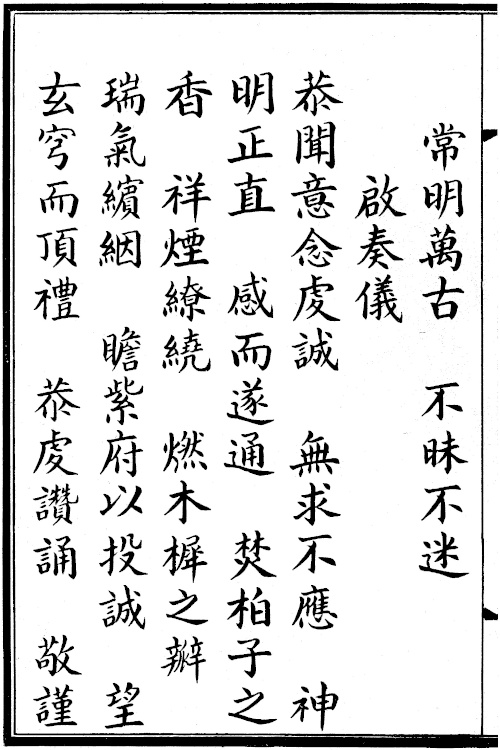 常明萬古　不昧不迷
啟奏儀
恭聞意念虔誠　無求不應　神
明正直　感而遂通　焚柏子之
香　祥煙繚繞　燃木樨之瓣
瑞氣繽絪　瞻紫府以投誠　望
玄穹而頂禮　恭虔讚誦　敬謹